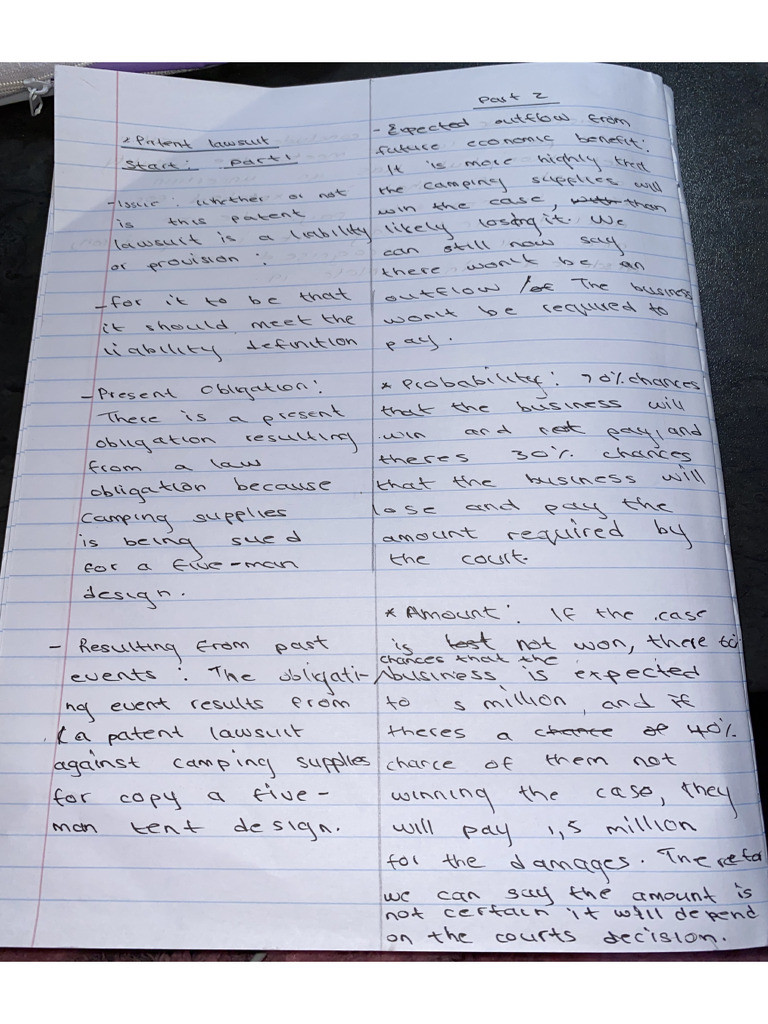 * Patent lawsuit
Start: Part 1
- Issue: whether or not
is this patent
lawsuit is a liability
or provision :
- for it to be that
it should meet the
liability definition
- Present Obligation:
There is a present
obligation resulting
from a law
obligation because
camping supplies
is being sued
for a five-man
design.
- Resulting from past
events : The obligati-
ng event results from
a patent lawsuit
against camping supplies
for copy a five-
man tent design.
Part 2
- Expected outflow from
future economic benefit:
It is more highly that
the camping supplies will
win the case, than
likely losing it. We
can still now say
there won't be an
outflow / of The business
won't be required to
pay.
* Probability: 70% chances
that the business will
win and not pay, and
theres 30% chances
that the business will
lose and pay the
amount required by
the court.
* Amount: If the case
is not won, there
chances that the
business is expected
to 5 million, and if
theres a chance of 40%
chance of them not
winning the case, they
will pay 1,5 million
for the damages. Therefor
we can say the amount is
not certain it will depend
on the courts decision.